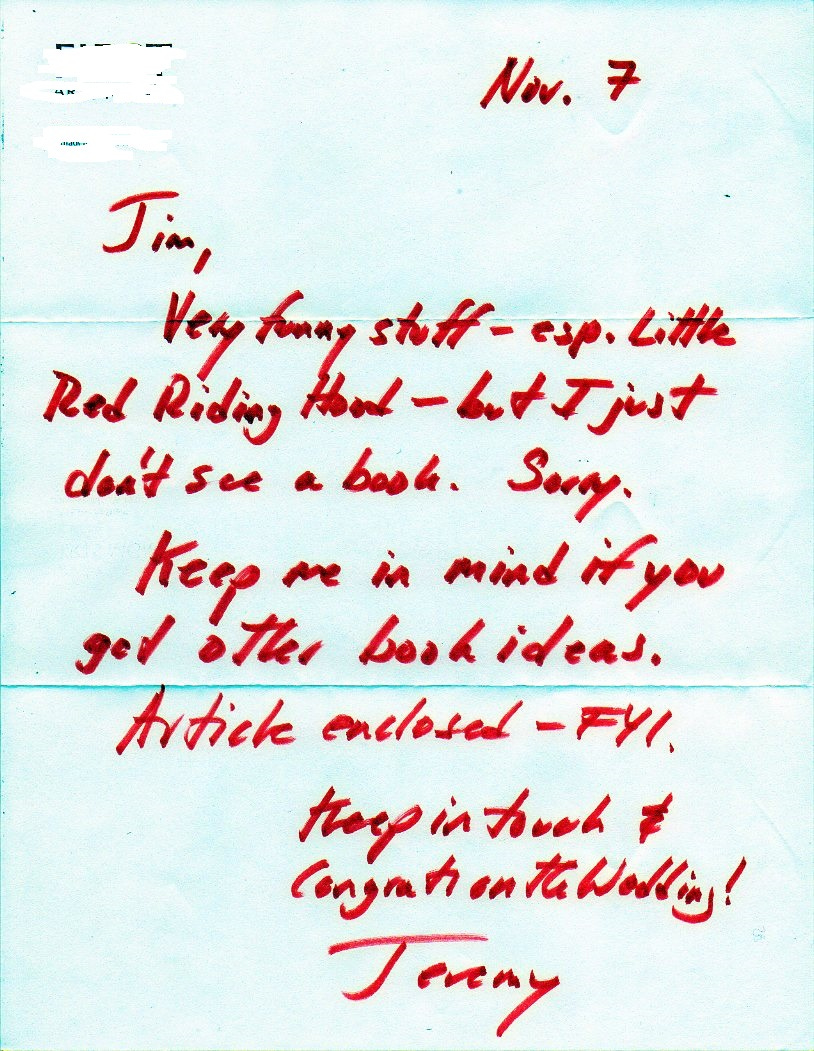 Nov. 7
Jim,
Very funny stuff - esp. Little
Red Riding Hood - but I just
don't see a book. Sorry.
Keep me in mind if you
get other book ideas.
Article enclosed - FYI.
Keep in touch &
Congrats on the Wedding!
Jeremy